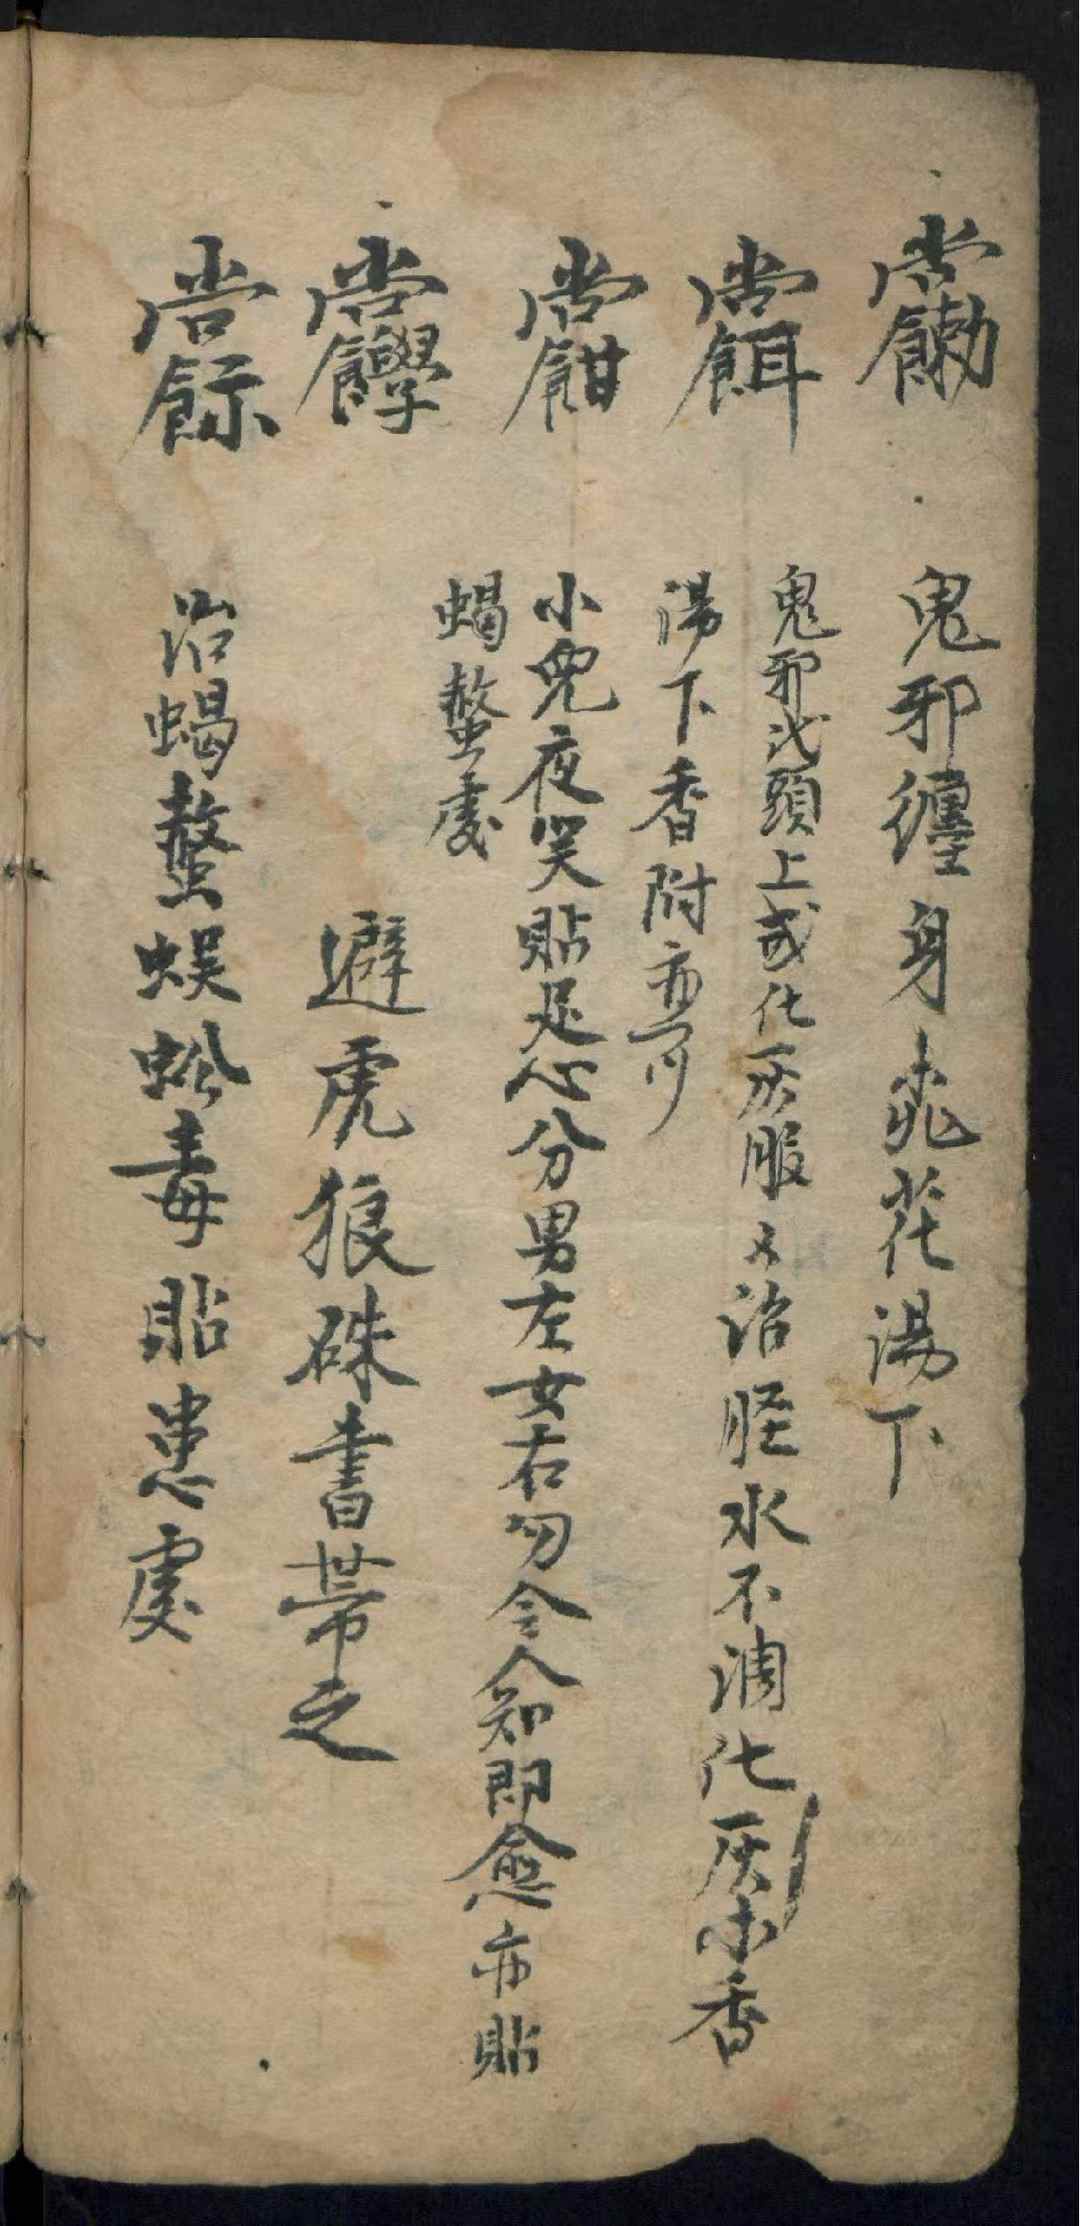 鬼邪纏身桃花湯下
鬼邪 頭上或化灰服又治 水不調化灰木香
湯下香附亦可
小兒夜哭貼足心分男左女右勿令人知即愈亦貼
蝎螫處
避虎狼硃書帶之
治蝎螫蜈蚣毒貼患處